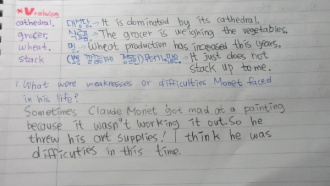 * Vocabulary
cathedral, 대성당 - It is dominated by its cathedral,
grocer, - The grocer is weighing the vegetables.
wheat. 밀 - Wheat production has increased this years.
stack - It just does not
stack up to me.
1. What were weaknesses or difficulties Monet faced
in his life?
Sometimes Claude Monet got mad at a painting
because it wasn't working it out. So he
threw his art supplies! I think he was
difficuties in this time.